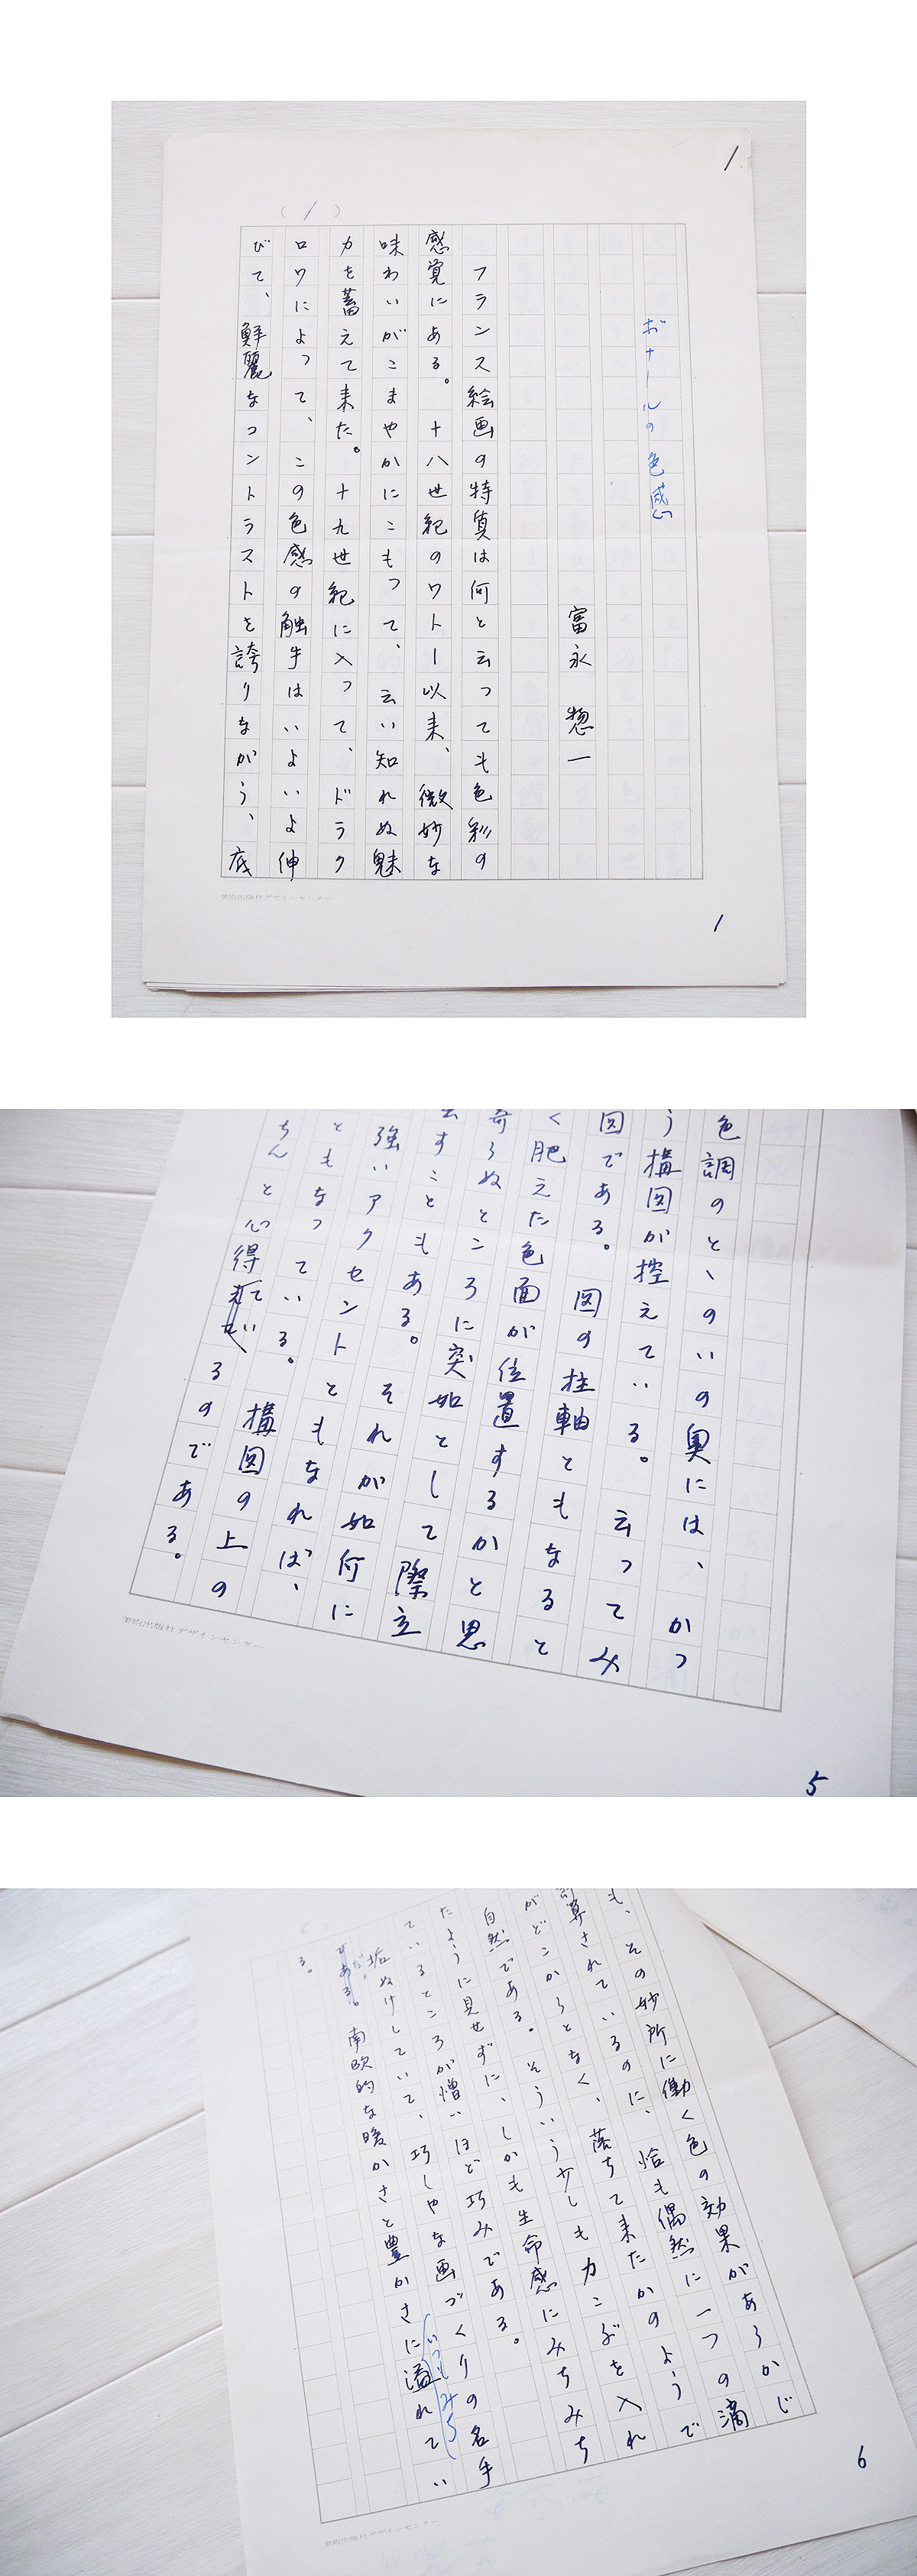 1
(1)
ボナールの色感
富永惣一
フランス絵画の特質は何と云っても色彩の
感覚にある。十八世紀のワトー以来、微妙な
味わいがこまやかにこもって、云い知れぬ魅
力を蓄えて来た。十九世紀に入って、ドラク
ロワによって、この色感の触手はいよいよ伸
びて、鮮麗なコントラストを誇りながら、底
美術出版社デザインセンター
1
色調のとゝのいの奥には、かつ
う構図が控えている。云ってみ
図である。図の柱軸ともなると
く肥えた色面が位置するかと思
寄らぬところに突如として際立
すこともある。それが如何に
強いアクセントともなれば、
ともなっている。構図の上の
ちんと心得ているのである。
美術出版社デザインセンター
5
も、その妙所に働く色の効果があらかじ
計算されているのに、恰も偶然に一つの滴
がどこからとなく、落ちて来たかのようで
自然である。そういう少しも力こぶを入れ
たように見せずに、しかも生命感にみちみち
ているところが憎いほど巧みである。
垢ぬけしていて、巧しやな画づくりの名手
だ。南欧的な暖かさと豊かさに溢れてい
いつもみち
る。
美術出版社デザインセンター
6